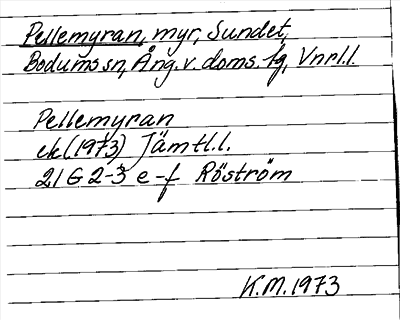 Pellemyran, myr, Sundet,
Bodums sn, Ång. v. doms. lg, Vnrl.l.
Pellemyran
ek (1973) Jämtl.l.
21 G 2-3 e-f Röström
K.M. 1973